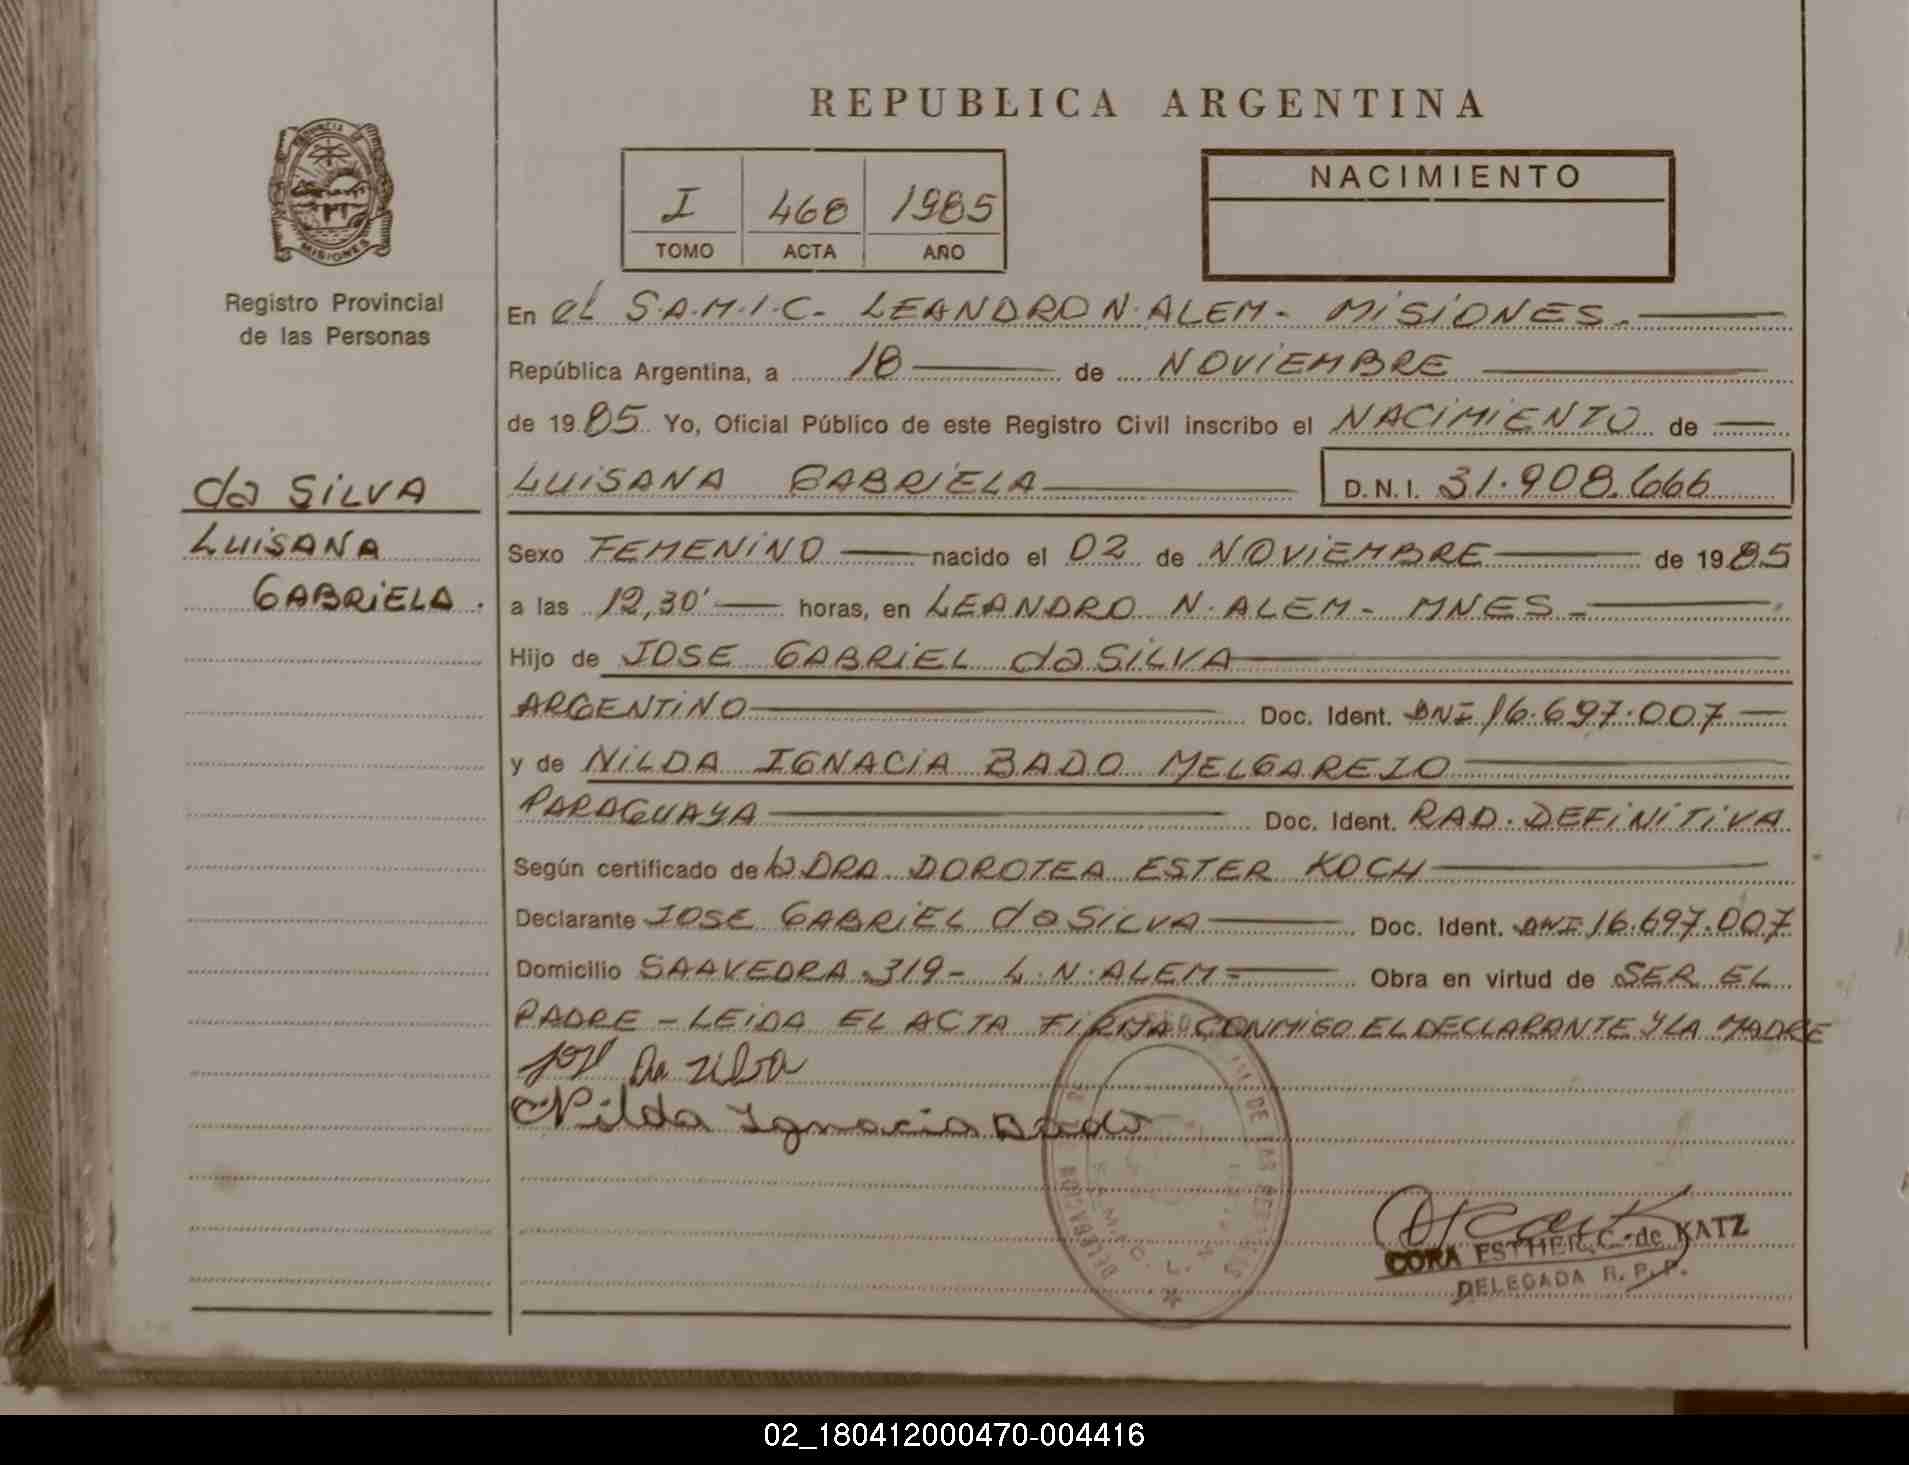 REPUBLICA ARGENTINA
PROVINCIA DE
MISIONES
Registro Provincial
de las Personas
I 468 1985
TOMO ACTA AÑO
NACIMIENTO
En el S.A.M.I.C. LEANDRO N. ALEM - MISIONES.
República Argentina, a 18 de NOVIEMBRE
de 1985 Yo, Oficial Público de este Registro Civil inscribo el NACIMIENTO de
LUISANA GABRIELA D.N.I. 31.908.666
da SILVA
LUISANA
GABRIELA.
Sexo FEMENINO nacido el 02 de NOVIEMBRE de 1985
a las 12,30' horas, en LEANDRO N. ALEM - MNES -
Hijo de JOSE GABRIEL da SILVA
ARGENTINO Doc. Ident. DNI 16.697.007
y de NILDA IGNACIA BADO MELGAREJO
PARAGUAYA Doc. Ident. RAD. DEFINITIVA
Según certificado de la DRA DOROTEA ESTER KOCH
Declarante JOSE GABRIEL da SILVA Doc. Ident. DNI 16.697.007
Domicilio SAAVEDRA 319 - L.N. ALEM - Obra en virtud de SER EL
PADRE - LEIDA EL ACTA FIRMA CONMIGO EL DECLARANTE Y LA MADRE
José Da Silva
Nilda Ignacia Bado
CORA ESTHER C. de KATZ
DELEGADA R. P. P.
02_180412000470-004416